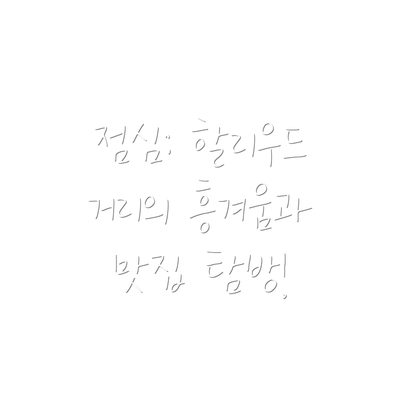 점심: 할리우드
거리의 흥겨움과
맛집 탐방.